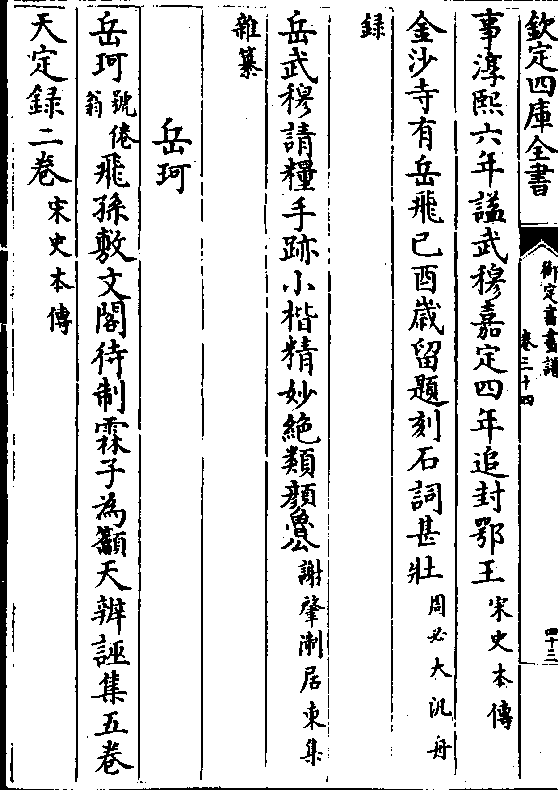 欽定四庫全書
御定書畫譜
卷三十四
四十三
事淳熙六年諡武穆嘉定四年追封鄂王宋史本傳
金沙寺有岳飛己酉歲留題刻石詞甚壯周必大汎舟
録
岳武穆請糧手跡小楷精妙絶類顔魯公謝肇淛居東集
雜纂
岳珂
岳珂號倦翁飛孫敷文閣待制霖子為籲天辨誣集五卷
天定録二卷宋史本傳